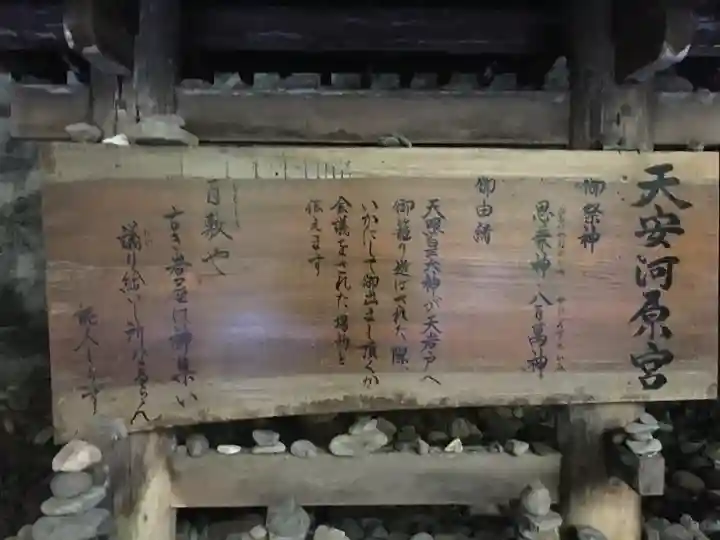 天安河原宮
御祭神
思兼神 八百萬神
御由緒
天照皇大神が天岩戸へ
御籠り遊ばされた際、
いかにして御出まし頂くか
会議をされた場所と
伝えます
百敷や
古き岩屋は神集い
議り給いし
詠人しらず